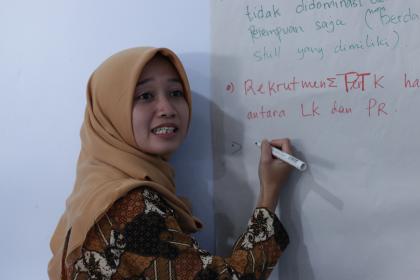 tidak didominasi
perempuan saga (berda
skill yang dimiliki)
Rekrutmen PRTK ha
antara Lk dan PR.